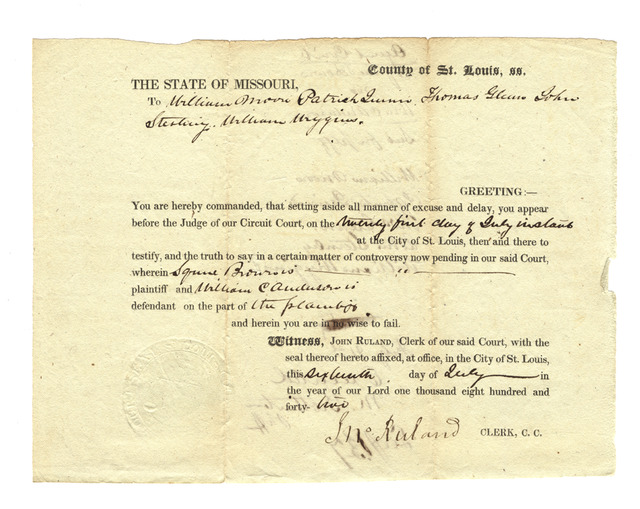 County of St. Louis, ss.
THE STATE OF MISSOURI,
To William Moore Patrick Quinn, Thomas Glenn John
Sterling, William Wiggins.
GREETING:—
You are hereby commanded, that setting aside all manner of excuse and delay, you appear
before the Judge of our Circuit Court, on the twenty first day of July instant
at the City of St. Louis, then and there to
testify, and the truth to say in a certain matter of controversy now pending in our said Court,
wherein Squire Brown is
plaintiff and William C Anderson is
defendant on the part of the plaintiff
and herein you are in no wise to fail.
Witness, JOHN RULAND, Clerk of our said Court, with the
seal thereof hereto affixed, at office, in the City of St. Louis,
this sixteenth day of July in
the year of our Lord one thousand eight hundred and
forty-two
Jno Ruland CLERK, C. C.